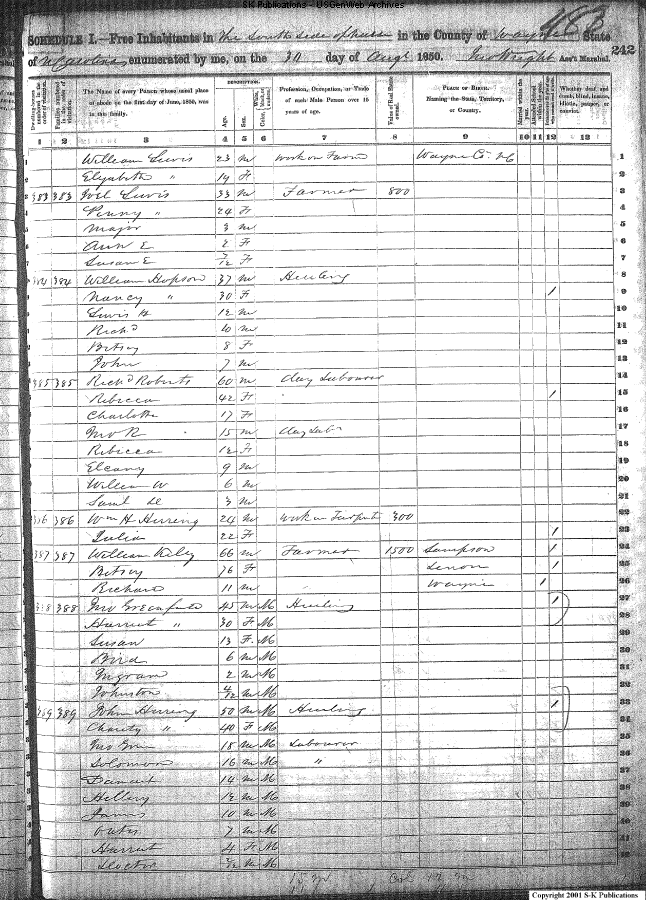 SK Publications - USGenWeb Archives
483
SCHEDULE I.—Free Inhabitants in the South side of in the County of Wayne State
of N Carolina enumerated by me, on the 30 day of Augt 1850. Jno Wright Ass't Marshal. 242
Dwelling-houses numbered in the order of visitation.
Families numbered in the order of visitation.
The Name of every Person whose usual place of abode on the first day of June, 1850, was in this family.
DESCRIPTION.
Age.
Sex.
Profession, Occupation, or Trade of each Male Person over 15 years of age.
Value of Real Estate owned.
PLACE OF BIRTH. Naming the State, Territory, or Country.
Married within the year.
Whether deaf and dumb, blind, insane, idiotic, pauper, or convict.
1 2 3 4 5 6 7 8 9 10 11 12 13
1 William Lewis 23 m work on Farm Wayne Co. NC 1
Elizabeth " 19 F 2
383 383 Joel Lewis 33 m Farmer 800 3
Penny " 24 F 4
Major 3 m 5
Ann E 2 F 6
Susan E 7/12 F 7
384 384 William Hopson 37 m 8
Nancy " 30 F 1 9
Lewis H 12 m 10
Richd 10 m 11
Betsey 8 F 12
John 7 m 13
385 385 Richd Roberts 60 m day Labourer 14
Rebecca 42 F 1 15
Charlotte 17 F 16
Jno R 15 m day Labr 17
Rebecca 12 F 18
Eleany 9 m 19
William W 6 m 20
Saml 3 m 21
386 386 Wm H Herring 24 m 300 22
Julia 22 F 1 23
387 387 William Kiley 66 m Farmer 1500 Sampson 1 24
Betsey 76 F Lenoir 1 25
Richard 11 m Wayne 1 26
388 388 Jno 45 m M 1 27
Harriet " 30 F M 28
Susan 13 F M 29
Bird 6 m M 30
Ingram 2 m M 31
Johnston 4/12 m M 32
389 389 John Herring 50 m M 1 33
Charity " 40 F M 34
Jno 18 m M Labourer 35
Solomon 16 m M " 36
14 m M
Hillery 12 m M 38
James 10 m M 39
7 m M 40
Harriet 4 F M
Doctor m M 42
Copyright 2001 S-K Publications